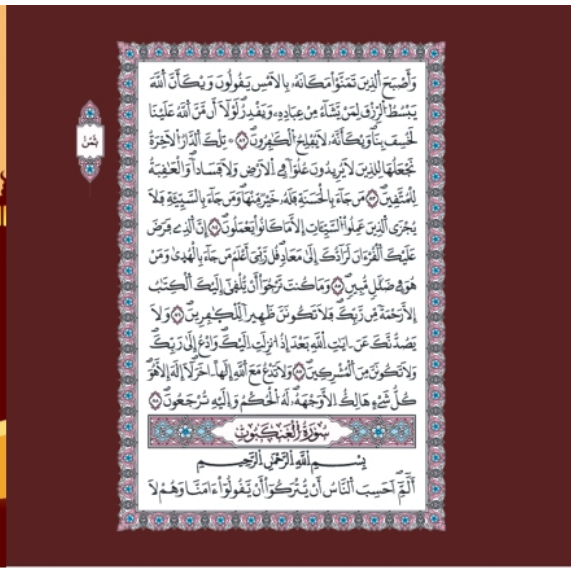 وَأَصْبَحَ ٱلذِينَ تَمَنَّوْاْ مَكَانَهُۥ بِالَامْسِ يَقُولُونَ وَيْكَأَنَّ ٱللَّهَ
يَبْسُطُ ٱلرِّزْقَ لِمَنْ يَّشَآءُ مِنْ عِبَادِهِۦ وَيَقْدِرُ لَوْلَآ أَن مَّنَّ ٱللَّهُ عَلَيْنَا
لَخُسِفَ بِنَا وَيْكَأَنَّهُۥ لَا يُفْلِحُ ٱلْكَٰفِرُونَ ۝ تِلْكَ ٱلدَّارُ ٱلَاخِرَةُ
نَجْعَلُهَا لِلذِينَ لَا يُرِيدُونَ عُلُوّاً فِے ٱلَارْضِ وَلَا فَسَاداً وَٱلْعَٰقِبَةُ
لِلْمُتَّقِينَ ۝ مَن جَآءَ بِالْحَسَنَةِ فَلَهُۥ خَيْرٌ مِّنْهَا وَمَن جَآءَ بِالسَّيِّئَةِ فَلَا
يُجْزَى ٱلذِينَ عَمِلُواْ ٱلسَّيِّـَٔاتِ إِلَّا مَا كَانُواْ يَعْمَلُونَ ۝ إِنَّ ٱلذِے فَرَضَ
عَلَيْكَ ٱلْقُرْءَانَ لَرَآدُّكَ إِلَىٰ مَعَادٍ قُل رَّبِّيَ أَعْلَمُ مَن جَآءَ بِالْهُدَىٰ وَمَنْ
هُوَ فِے ضَلَٰلٍ مُّبِينٍ ۝ وَمَا كُنتَ تَرْجُوٓاْ أَنْ يُّلْقَىٰٓ إِلَيْكَ ٱلْكِتَٰبُ
إِلَّا رَحْمَةً مِّن رَّبِّكَ فَلَا تَكُونَنَّ ظَهِيراً لِّلْكٰ۪فِرِينَ ۝ وَلَا
يَصُدُّنَّكَ عَنَ اٰيَٰتِ ٱللَّهِ بَعْدَ إِذُ ا۟نزِلَتِ اِلَيْكَ وَادْعُ إِلَىٰ رَبِّكَ
وَلَا تَكُونَنَّ مِنَ ٱلْمُشْرِكِينَ ۝ وَلَا تَدْعُ مَعَ ٱللَّهِ إِلَٰهاً اٰخَرَ لَآ إِلَٰهَ إِلَّا هُوَ
كُلُّ شَےْءٍ هَالِكٌ اِلَّا وَجْهَهُۥ لَهُ ٱلْحُكْمُ وَإِلَيْهِ تُرْجَعُونَ ۝
سُورَةُ ٱلْعَنكَبُوتِ
بِسْمِ ٱللَّهِ ٱلرَّحْمَٰنِ ٱلرَّحِيمِ
أَلَٓمِّٓ أَحَسِبَ ٱلنَّاسُ أَنْ يُّتْرَكُوٓاْ أَنْ يَّقُولُوٓاْ ءَامَنَّا وَهُمْ لَا
ثُمُنْ